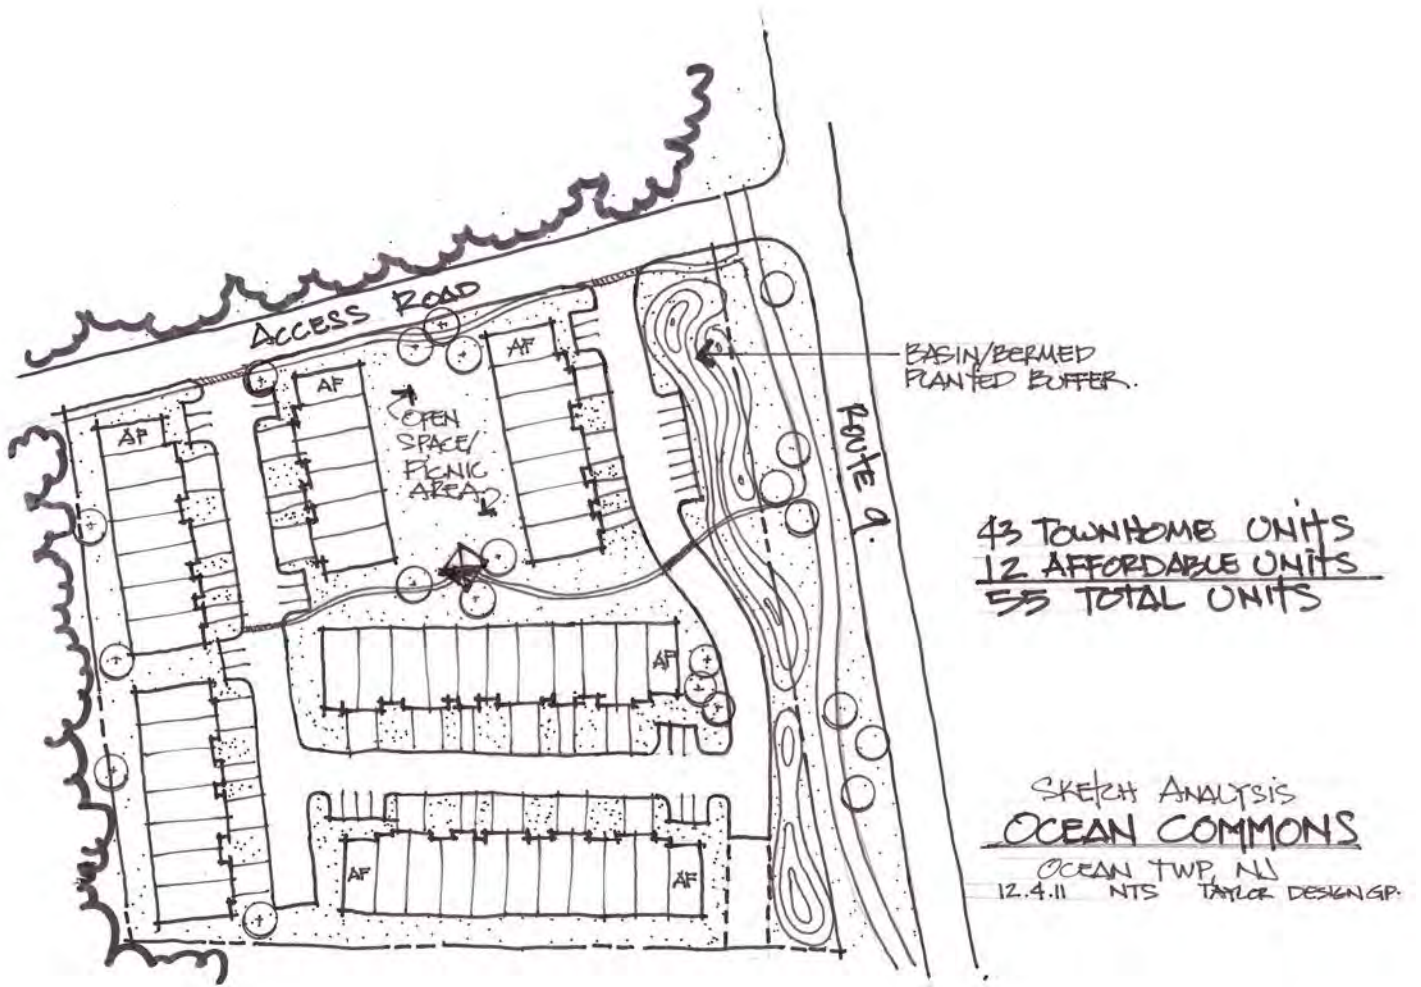 ACCESS ROAD
AF
AF
AF
OPEN
SPACE/
PICNIC
AREA
BASIN/BERMED
PLANTED BUFFER.
ROUTE 9.
43 TOWNHOME UNITS
12 AFFORDABLE UNITS
55 TOTAL UNITS
AF
AF
AF
SKETCH ANALYSIS
OCEAN COMMONS
OCEAN TWP, NJ
12.4.11 NTS TAYLOR DESIGN GP.